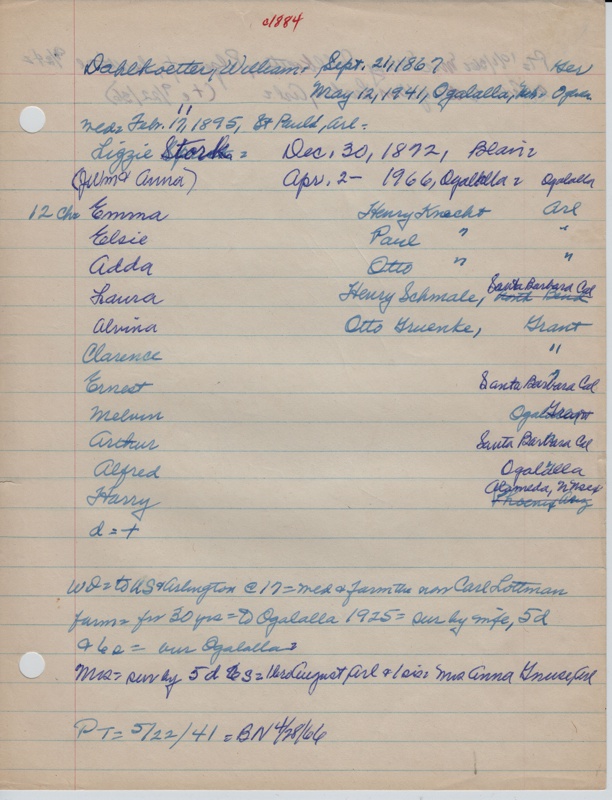 c1884
Dahlkoetter, William = Sept. 21, 1867 Ger
May 12, 1941, Ogalalla, Nes =
med = Feb. 17, 1895, St Pauls, Arl =
11
Lizzie Stork = Dec. 30, 1872, Blair =
( & Anna) Apr. 2 - 1966, Ogalalla = Ogalalla
12 Ch = Emma Henry Knecht Arl
Elsie Paul " "
Adda Otto " "
Laura Henry Schmale, Santa Barbara Cal North Bend
Alvina Otto Gruenke, Grant
Clarence "
Ernest Santa Barbara Cal
Melvin Ogal Grant
Arthur Santa Barbara Cal
Alfred Ogalalla
Harry Alameda, N Mex
Phoenix Ariz
d = +
WD = to US & Arlington @ 17 = med & farm the now Carl Lottman
farm = for 30 yrs = to Ogalalla 1925 = sur by wife, 5 d
& 6 s = our Ogalalla =
Mrs = sur by 5 d & 6 s = 1 br August Arl & 1 sis = Mrs Anna Gnuse Arl
PT = 5/22/41 = BN 4/28/66